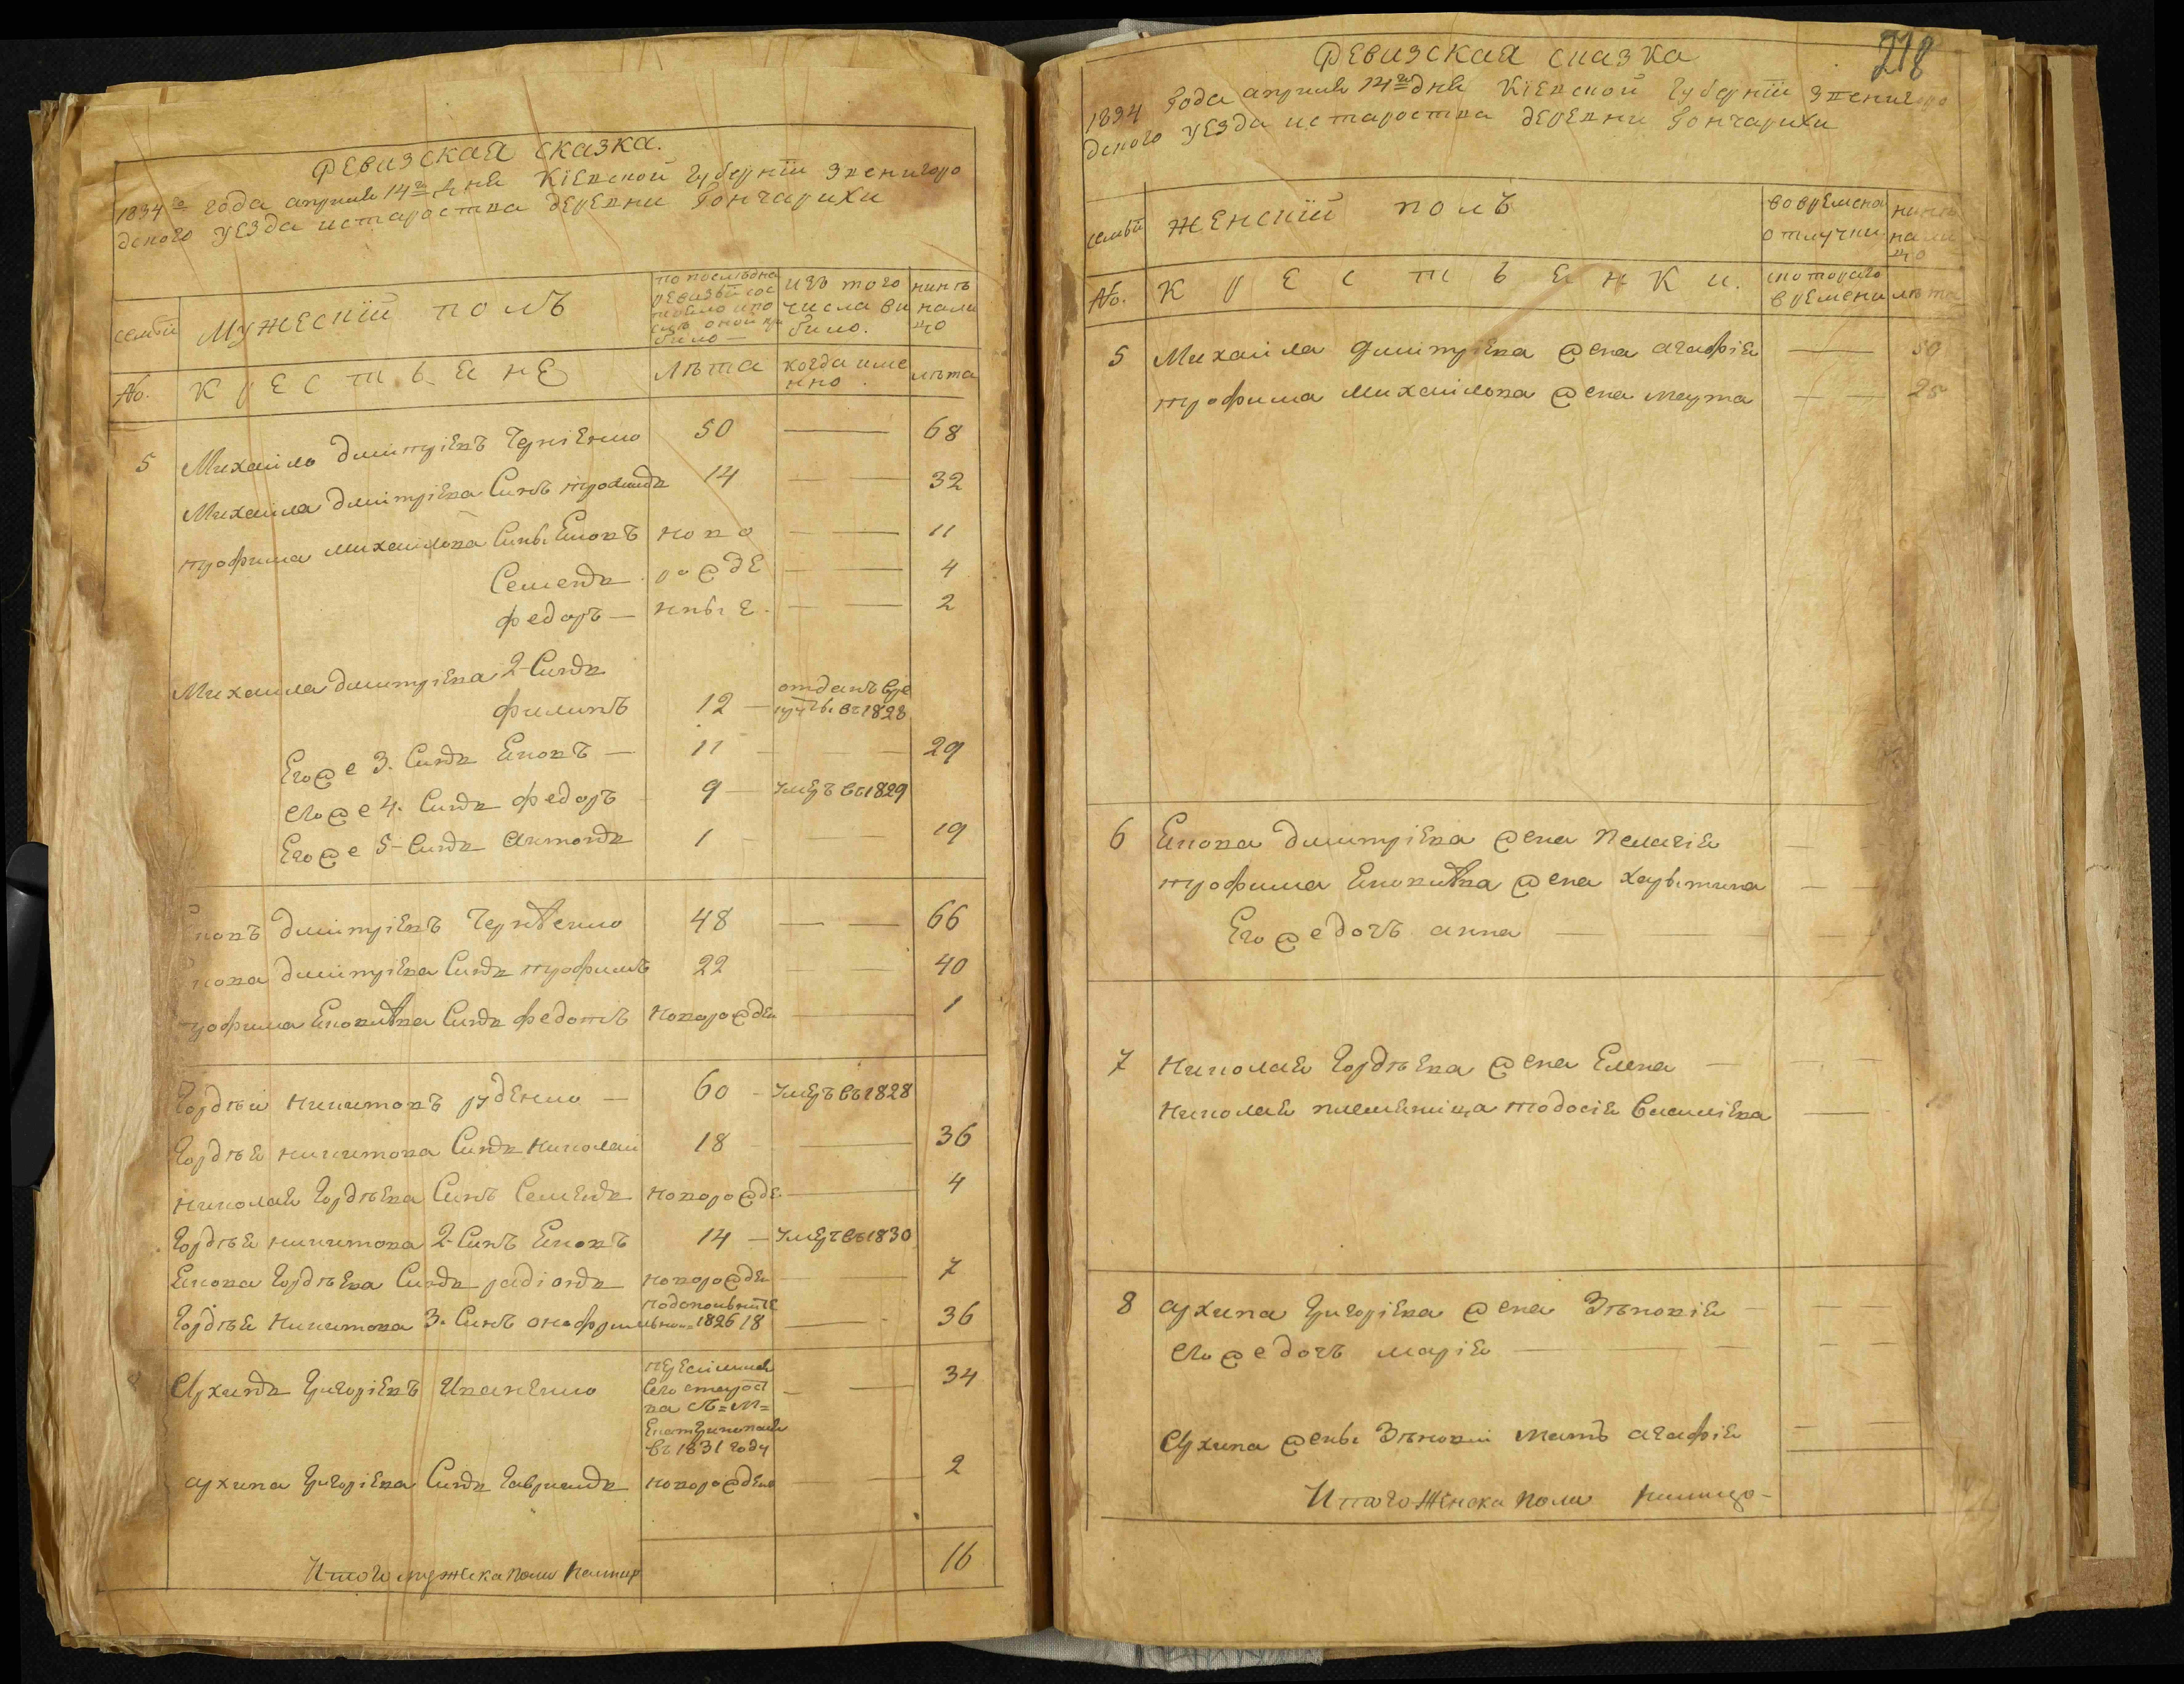 Ревизская сказка.
1834го года апреля 14го дня Кіевской губерніи Звенигоро
дского уезда староства деревни Гончарихи
семьи
Мужескій полъ
по последней
ревизьи сос
тояло и по
слѣ оной при
било —
изъ того
числа ви
било.
нинѣ
нали
цо
No.
Крестьяне
лѣта
когда име
нно.
лѣта
5 Михайло Дмитріевъ Чернієнко 50 — 68
Михаила Дмитріева Синъ Трофимъ 14 — — 32
Трофима Михайлова Сины Яковъ ново — — 11
Семенъ рожде — — 4
Федоръ — нные. — — 2
Михаила Дмитріева 2-Синъ
Филипъ 12 — отданъ в ре
круты въ 1828
Его же 3. Синъ Яковъ — 11 — — 29
Его же 4. Синъ Федоръ 9 — умеръ въ 1829
Его же 5-Синъ Антонъ 1 — — 19
Яковъ Дмитріевъ Чернѣенко 48 — — 66
Якова Дмитріева Синъ Трофимъ 22 — 40
Трофима Яковлева Синъ Федотъ новорожден — 1
Гордѣй Никитовъ Руденко — 60 — умеръ въ 1828
Гордѣя Никитова Синъ Николай 18 — 36
Николая Гордѣева Синъ Семенъ новорожде — 4
Гордѣя Никитова 2-Синъ Яковъ 14 — умеръ въ 1830
Якова Гордѣева Синъ Радіонъ новорожден — 7
Гордѣя Никитова 3. Синъ Онофрій
1826 18 — 36
Архипъ Григоріевъ Иваненко
сего старост
ва
въ 1831 году
— — 34
Архипа Григоріева Синъ Гавриилъ новорожден — 2
Итого мужеска полу налицо 16
218
Ревизская сказка
1834 года апреля 14го дня Кіевской губерніи Звенигоро
дского уезда староства деревни Гончарихи
семьи
Женскій полъ
во времена
отлучки.
нинѣ
нали
цо
No.
Крестьянки.
с котораго
времени
лѣта
5 Михайла Дмитріева жена Агафія — 50
Трофима Михайлова жена Марта — — 25
6 Якова Дмитріева жена Пелагія —
Трофима Яковлева жена Харьтина — —
Его же дочь Анна — — —
7 Николая Гордѣева жена Елена — — —
Николая племеница Тодосія Василіева —
8 Архипа Григоріева жена Зѣновія — —
Его же дочъ Марія — — —
Архипа жены Зѣновіи мать Агафія — —
Итого Женска полу налицо —